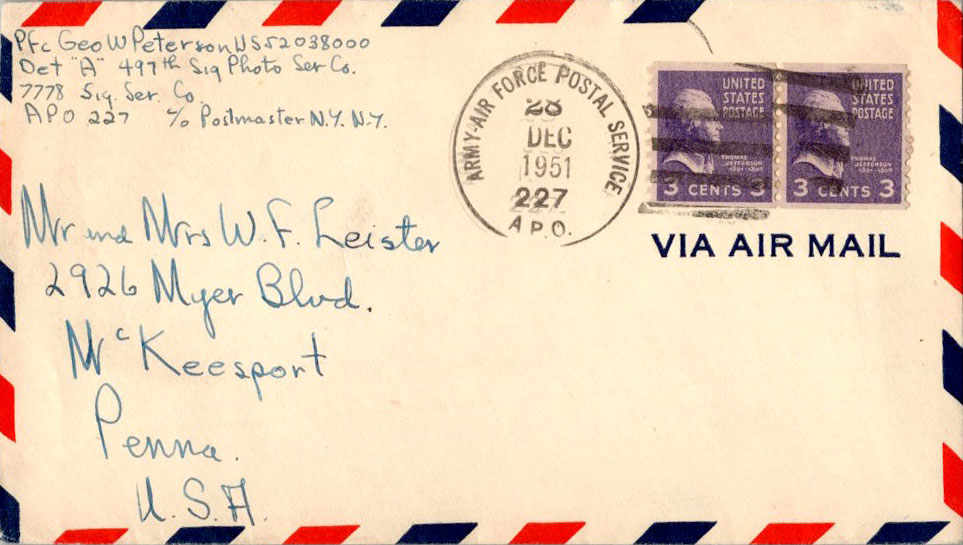 Pfc Geo W Peterson US52038000
Det "A" 497th Sig Photo Ser Co.
7778 Sig. Ser. Co
APO 227 c/o Postmaster N.Y. N.Y.
ARMY-AIR FORCE POSTAL SERVICE
28
DEC
1951
227
A.P.O.
UNITED
STATES
POSTAGE
THOMAS
JEFFERSON
1801-1809
3 CENTS 3
UNITED
STATES
POSTAGE
THOMAS
JEFFERSON
1801-1809
3 CENTS 3
VIA AIR MAIL
Mr and Mrs W. F. Leister
2926 Myer Blvd.
McKeesport
Penna.
U.S.A.